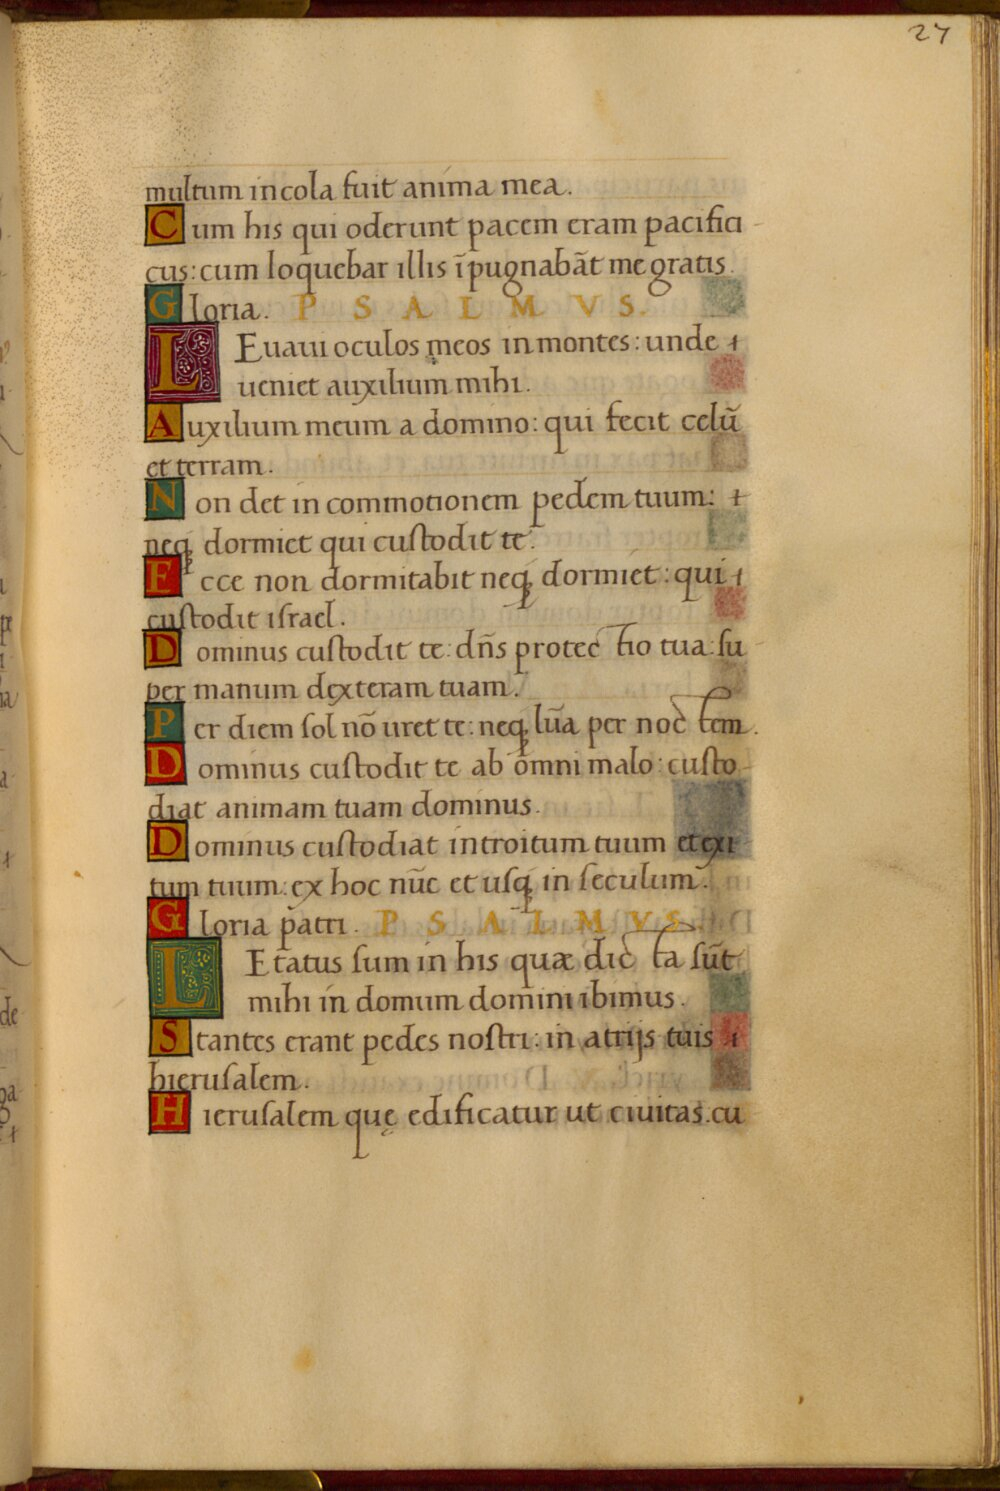 27
multum incola fuit anima mea.
Cum his qui oderunt pacem eram pacifici
cus: cum loquebar illis īpugnabãt me gratis.
Gloria. PSALMVS.
LEuaui oculos meos in montes: unde
ueniet auxilium mihi.
Auxilium meum a domino: qui fecit celũ
et terram.
Non det in commotionem pedem tuum:
neq̧ dormiet qui cuſtodit te.
Ecce non dormitabit neq̧ dormiet: qui
cuſtodit iſrael.
Dominus cuſtodit te: dñs protectio tua: ſu
per manum dexteram tuam.
Per diem ſol nõ uret te: neq̧ lũa per noctem.
Dominus cuſtodit te ab omni malo: cuſto
diat animam tuam dominus.
Dominus cuſtodiat introitum tuum et exi
tum tuum: ex hoc nũc et uſq̧ in ſeculum.
Gloria patri. PSALMVS
LEtatus ſum in his quæ dicta ſũt
mihi in domum domini ibimus.
Stantes erant pedes noſtri: in atrijs tuis
hieruſalem.
Hieruſalem quę edificatur ut ciuitas. cu